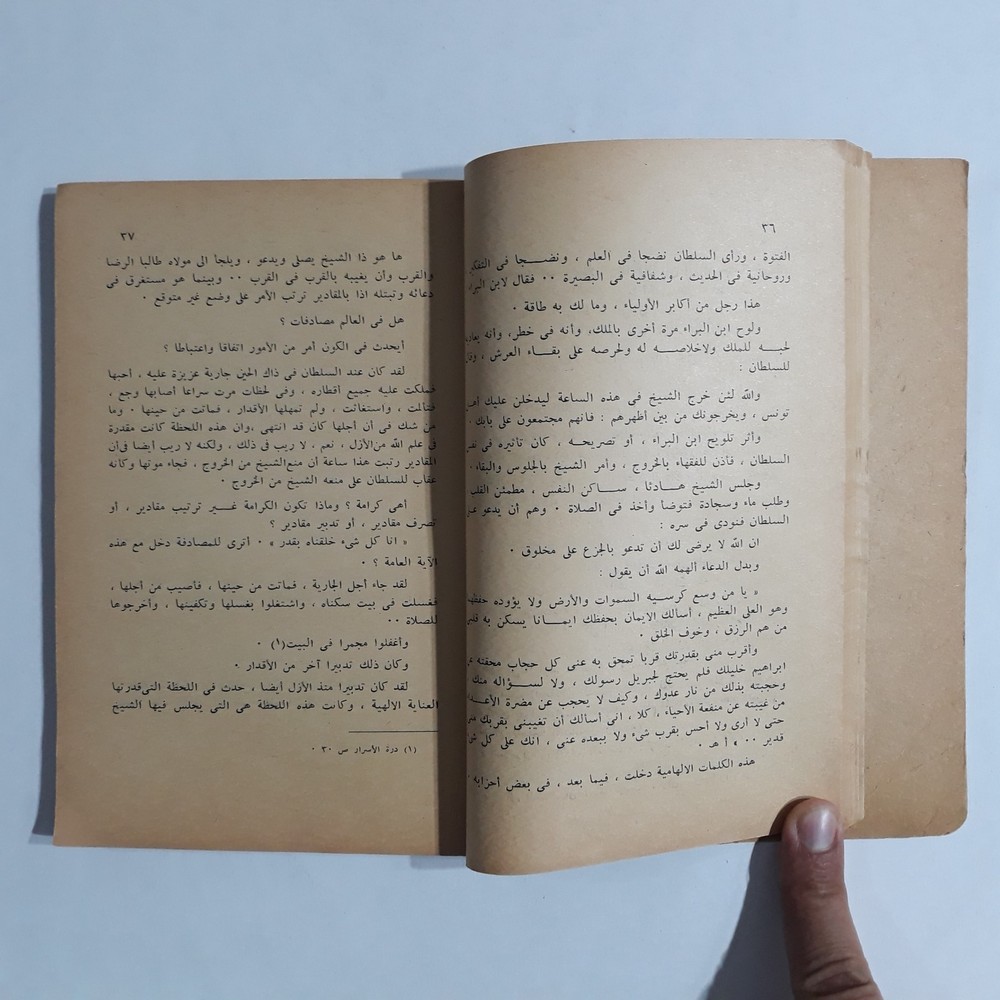 ٣٦
الفتوة ، ورأى السلطان نضجا فى العلم ، ونضــــجا فى التفكير
وروحانية فى الحديث ، وشفافية فى البصيرة ٠٠ فقال لابن البراء
هذا رجل من أكابر الأولياء ، وما لك به طاقة ٠
ولوح ابن البراء مرة أخرى بالملك، وأنه فى خطر، وأنه
لحبــه للملك ولاخلاصــه له ولحرصه على بقــاء العرش ،
للسلطان :
والله لئن خرج الشيخ فى هذه الساعة ليدخلن عليك أهل
تونس ، ويخرجونك من بين أظهرهم : فانهم مجتمعون على بابك ٠
وأثر تلويح ابن البراء ، أو تصريحــه ، كان تأثيره فى
السلطان ، فأذن للفقهاء بالخروج ، وأمر الشيخ بالجلوس والبقاء ٠
وجلس الشيخ هــادئا ، ســاكن النفس ، مطمئن القلب
وطلب ماء وسجادة فتوضأ وأخذ فى الصلاة ٠ وهم أن يدعو
السلطان فنودى فى سره :
ان الله لا يرضى لك أن تدعو بالجزع على مخلوق ٠
وبدل الدعاء ألهمه الله أن يقول :
« يا من وسع كرســيه السموات والأرض ولا يؤوده حفظهما
وهو العلى العظيم ، أسالك الايمان بحفظك ايمــانا يسكن به
من هم الرزق ، وخوف الخلق ٠
وأقرب منى بقدرتك قربا تمحق به عنى كل حجاب محقته
ابراهيم خليلك فلم يحتج لجبريل رسولك ، ولا لســؤاله منك
وحجبته بذلك من نار عدوك ، وكيف لا يحجب عن مضرة الأعــداء
من غيبته عن منفعة الأحياء ، كلا ، انى أسالك أن تغيبنى بقربك
حتى لا أرى ولا أحس بقرب شىء ولا ببعده عنى ، انك على كل
قدير ٠٠ » أ هـ ٠
هذه الكلمات الالهامية دخلت ، فيما بعد ، فى بعض أحزابه
٣٧
ها هو ذا الشيخ يصلى ويدعو ، ويلجأ الى مولاه طالبا الرضا
والقرب وأن يغيبه بالقرب فى القرب ٠٠ وبينما هو مستغرق فى
دعائه وتبتله اذا بالمقادير ترتب الأمر على وضع غير متوقع ٠
هل فى العالم مصادفات ؟
أيحدث فى الكون أمر من الأمور اتفاقا واعتباطا ؟
لقد كان عند السلطان فى ذاك الحين جارية عزيزة عليه ، أحبها
فملكت عليه جميع أقطاره ، وفى لحظات مرت سراعا أصابها وجع ،
فتألمت ، واستغاثت ، ولم تمهلها الأقدار ، فماتت من حينها ٠ وما
من شك فى أن أجلها كان قد انتهى ،وان هذه اللحظة كانت مقدرة
فى علم الله من الأزل ، نعم ، لا ريب فى ذلك ، ولكنه لا ريب أيضا فى أن
المقادير رتبت هذا ساعة أن منع الشيخ من الخروج ، فجاء موتها وكأنه
عقاب للسلطان على منعه الشيخ من الخروج ٠
أهى كرامة ؟ وماذا تكون الكرامة غــير ترتيب مقادير ، أو
تصرف مقادير ، أو تدبير مقادير ؟
« انا كل شىء خلقناه بقدر » ٠ أترى للمصادفة دخل مع هذه
الآية العامة ؟ ٠
لقد جاء أجل الجارية ، فماتت من حينها ، فأصيب من أجلها ،
فغسلت فى بيت سكناه ، واشتغلوا بغسلها وتكفينها ، وأخرجوها
للصلاة ٠٠
وأغفلوا مجمرا فى البيت(١) ٠
وكان ذلك تدبيرا آخر من الأقدار ٠
لقد كان تدبيرا منذ الأزل أيضا ، حدث فى اللحظة التى قدرتها
العناية الالهية ، وكانت هذه اللحظة هى التى يجلس فيها الشيخ
(١) درة الأسرار ص ٣٠ ٠